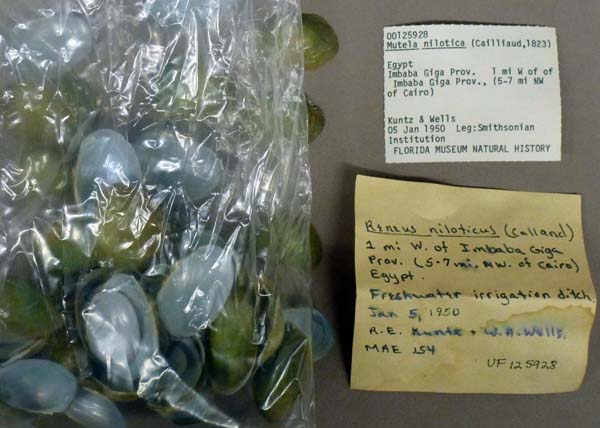 00125928
Mutela nilotica (Cailliaud,1823)
Egypt
Imbaba Giga Prov. 1 mi W of of
Imbaba Giga Prov., (5-7 mi NW
of Cairo)
Kuntz & Wells
05 Jan 1950 Leg:Smithsonian
Institution
FLORIDA MUSEUM NATURAL HISTORY
Reneus niloticus (Calland)
1 mi W. of Imbaba Giga
Prov. (5-7 mi. NW. of Cairo)
Egypt.
Freshwater irrigation ditch.
Jan 5, 1950
R.E. Kuntz + W.H. Wells.
MAE 154
UF 125928